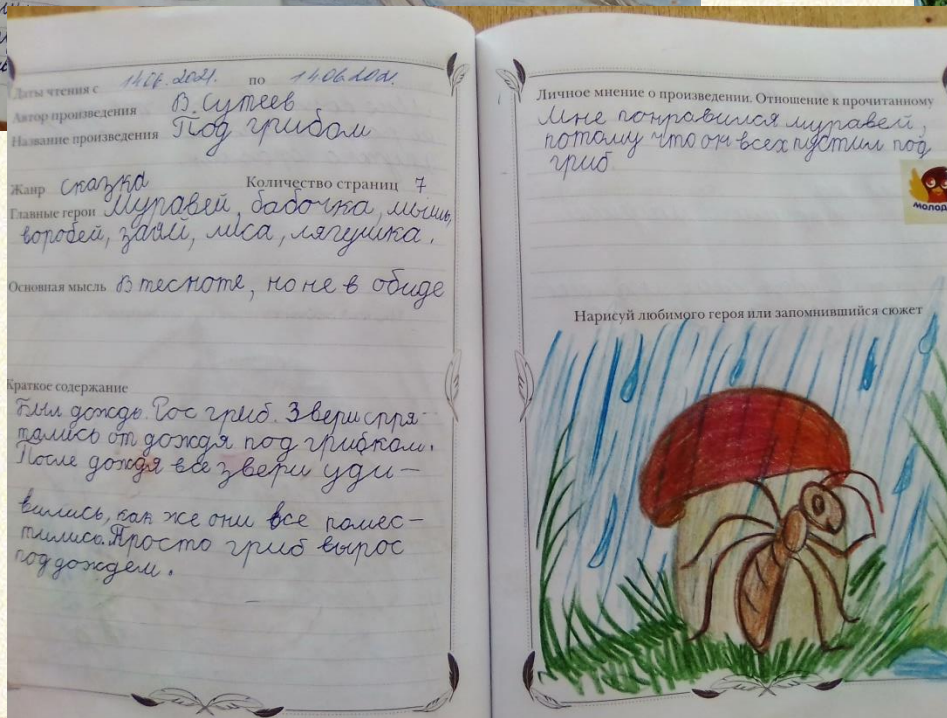 Даты чтения с 14.06.2021. по 14.06.2021.
Автор произведения В. Сутеев
Название произведения Под грибом
Жанр сказка Количество страниц 7
Главные герои Муравей, бабочка, мышь,
воробей, заяй, лиса, лягушка.
Основная мысль В тесноте, но не в обиде
Краткое содержание
Был дождь. Рос гриб. Звери спря-
тались от дождя под грибком.
После дождя все звери уди-
вились, как же они все помес-
тились. Просто гриб вырос
под дождем.
Личное мнение о произведении. Отношение к прочитанному
Мне понравился муравей,
потому что он всех пустил под
гриб
МОЛОД
Нарисуй любимого героя или запомнившийся сюжет